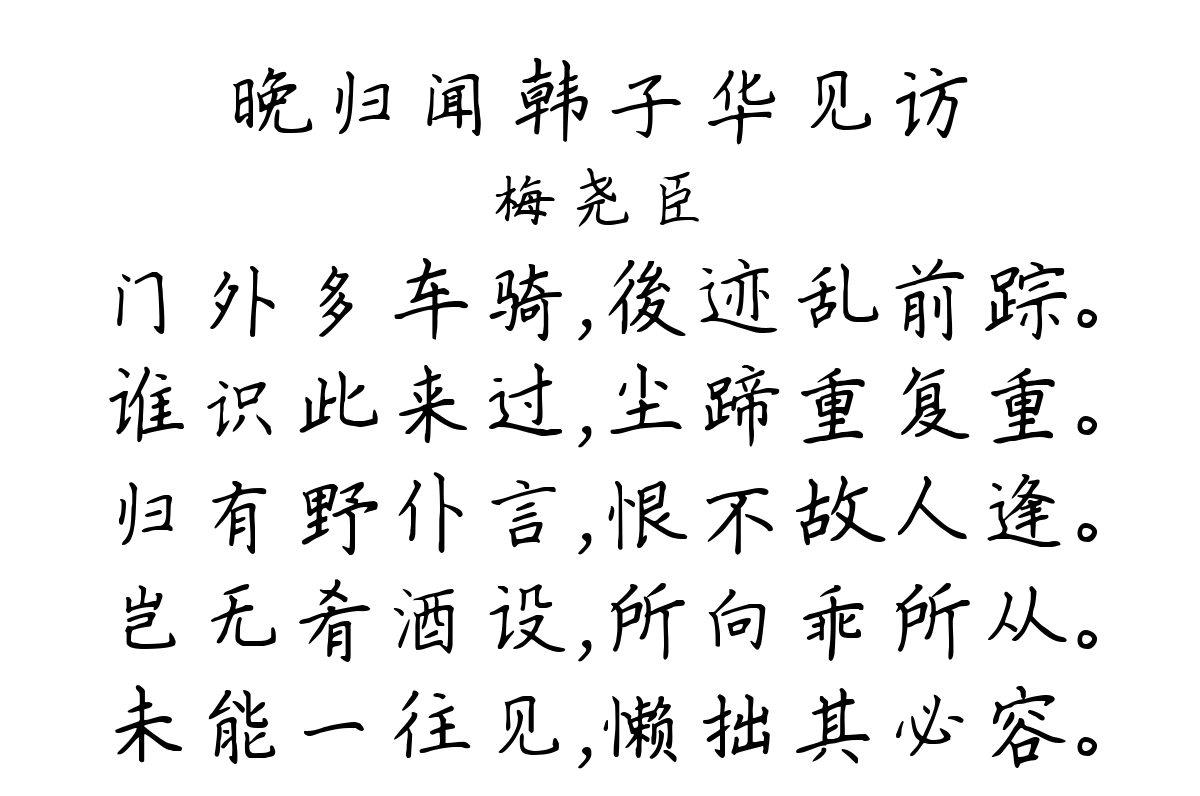 晚归闻韩子华见访
梅尧臣
门外多车骑,後迹乱前踪。
谁识此来过,尘蹄重复重。
归有野仆言,恨不故人逢。
岂无肴酒设,所向乖所从。
未能一往见,懒拙其必容。